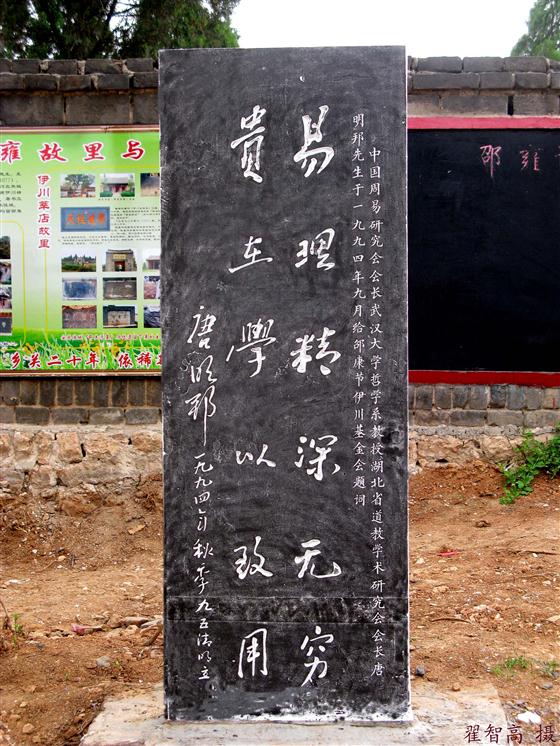 中国周易研究会会长武汉大学哲学系教授湖北省道教学术研究会会长唐
明邦先生于一九九四年九月给邵康节伊川基金会题词
易理精深无穷
貴在學以致用
唐明邦 一九九四年秋 九五清明立
雍故里与
伊川莘店故里
乡关二十年 依稀
邵雍
翟智高 摄